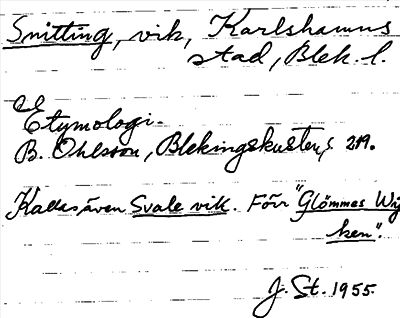 Snitting, vik, Karlshamns
stad, Blek. l.
Etymologi.
B. Ohlsson, Blekingskusten, 219.
Kallas även Svale vik. Förr "Glömmes Wij
ken".
J. St. 1955.